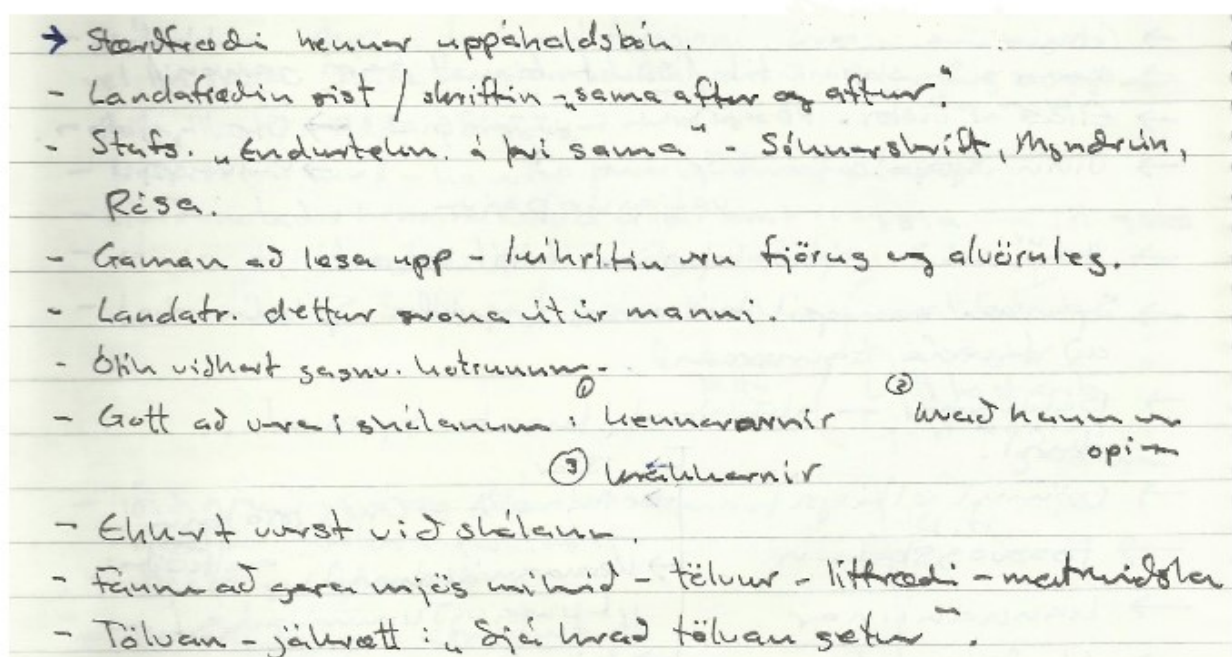 → Stærðfræði hennar uppáhaldsbók.
- Landafræðin síst / skriftin - „sama aftur og aftur."
- Stafs. „Endurtekn. á því sama" - Sóknarskrift, Myndrún,
Rása.
- Gaman að lesa upp - leikritin eru fjörug og alvöruleg.
- Landafr. dettur svona út úr manni.
- Ólík viðhorf gagnv. kötrunum.
- Gott að vera í skálanum: ① kennararnir ② hvað hann er
opinn
③ krakkarnir
- Ekkert verst við skálann.
- Fáum að gera mjög mikið - tölvur - líffræði - matreiðsla
- Tölvan - jákvætt: „Sjá hvað tölvan getur".